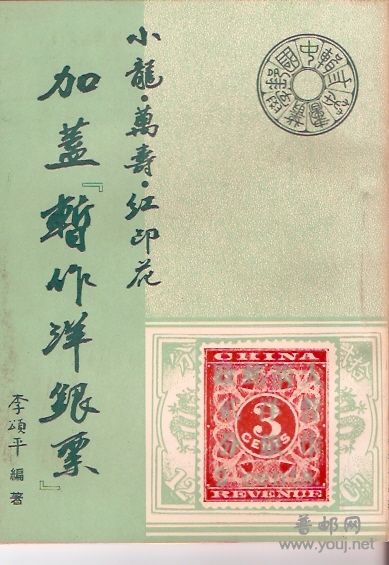 小龍·萬壽·紅印花
加蓋『暫作洋銀票』
李頌平編著
CHINA
3
CENTS
REVENUE
12
普邮网
www.youj.net